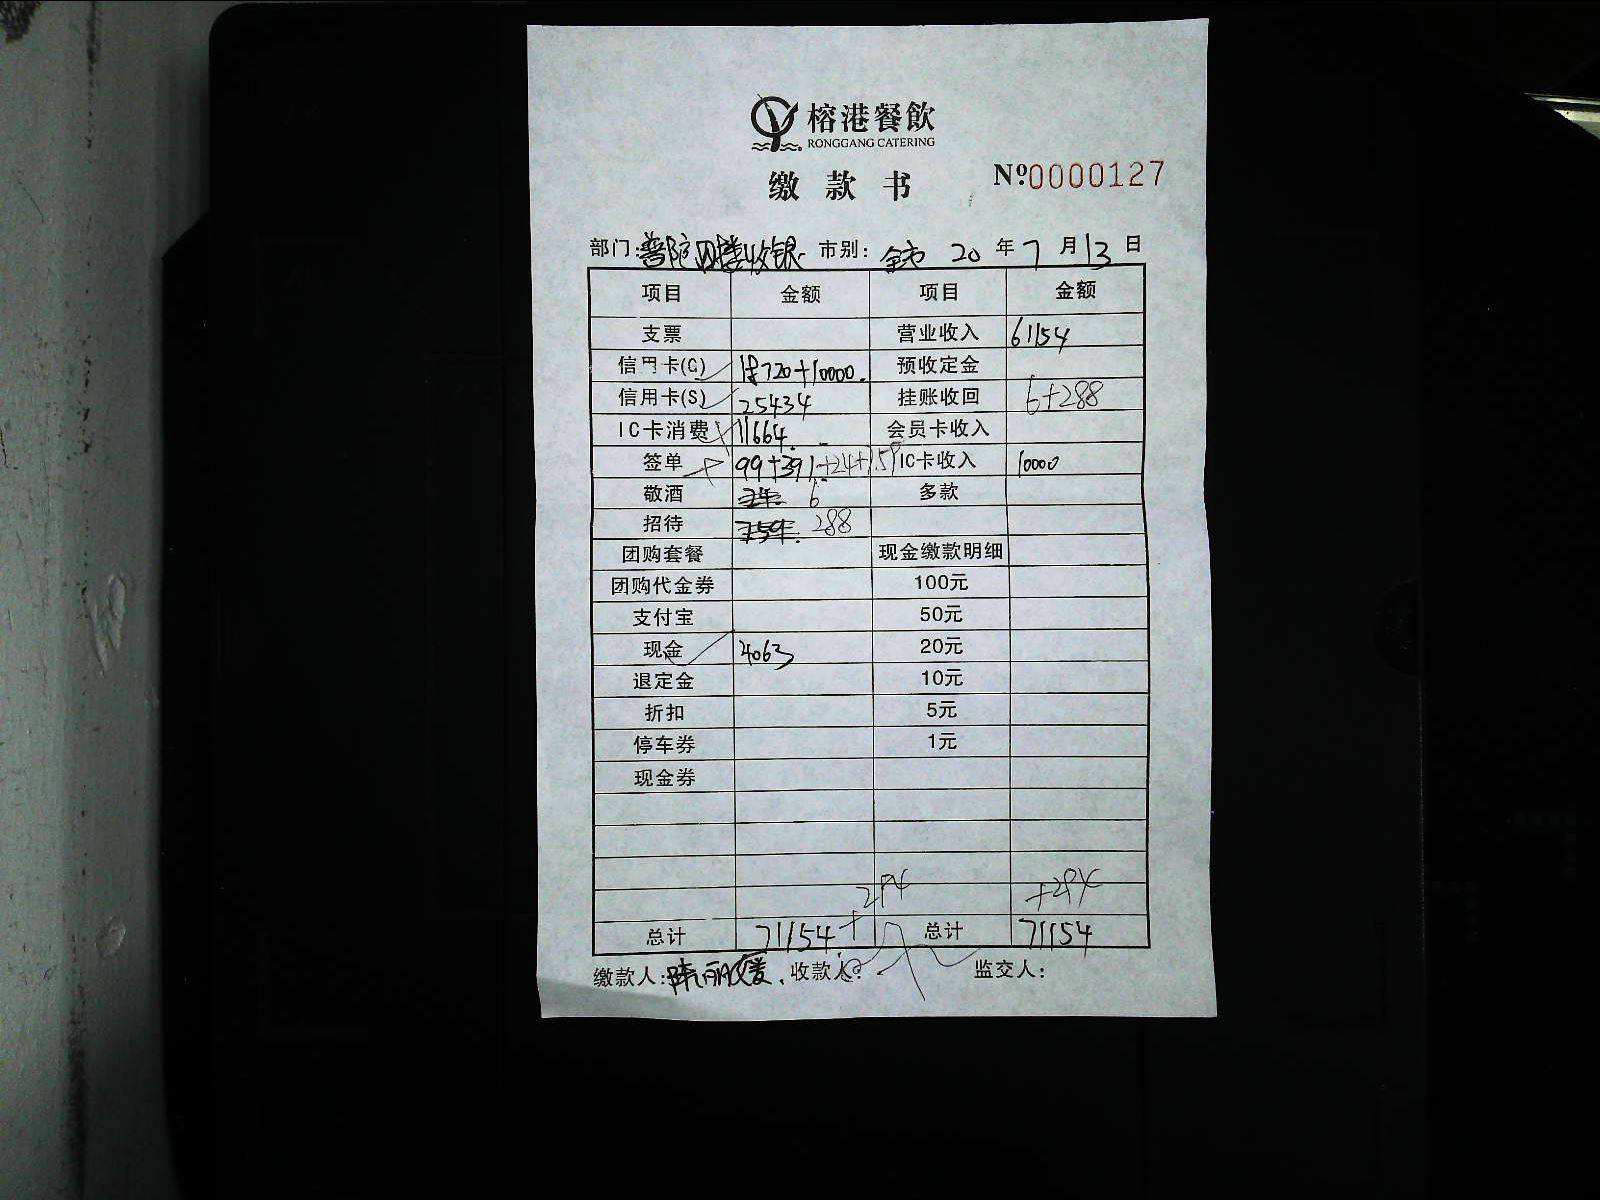 榕港餐飲
RONGGANG CATERING
缴款书 №0000127
部门:普陀四楼收银 市别: 全市 20年7月13日
项目 金额 项目 金额
支票 营业收入 61154
信用卡(G) 720+10000. 预收定金
信用卡(S) 25434 挂账收回 6+288
IC卡消费 11664. 会员卡收入
签单 99+391+24+159 IC卡收入 10000
敬酒 6 多款
招待 288
团购套餐 现金缴款明细
团购代金券 100元
支付宝 50元
现金 4063 20元
退定金 10元
折扣 5元
停车券 1元
现金券
294 +294
总计 71154+ 总计 71154
缴款人:陈丽媛. 收款人: 监交人: